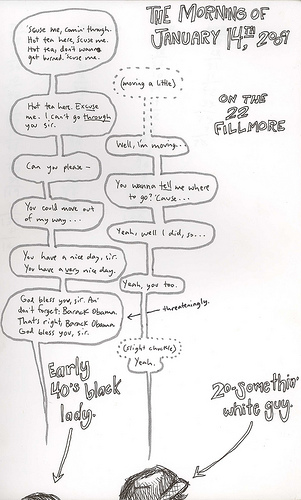 THE MORNING OF
JANUARY 14TH, 2009
ON THE
22
FILLMORE
'Scuse me, comin' through.
Hot tea here, scuse me.
Hot tea, don't wanna
get burned. 'scuse me.
(moving a little)
Hot tea here. Excuse
me. I can't go through
you sir.
Well, i'm moving...
Can you please –
You wanna tell me where
to go? 'Cause...
You could move out
of my way...
Yeah, well I did, so...
You have a nice day, sir.
You have a very nice day.
Yeah, you too.
God bless you, sir. An'
don't forget: Barack Obama.
That's right, Barack Obama
God bless you, sir.
threateningly.
(slight chuckle)
Yeah.
Early
40's black
lady.
20-Somethin'
white guy.